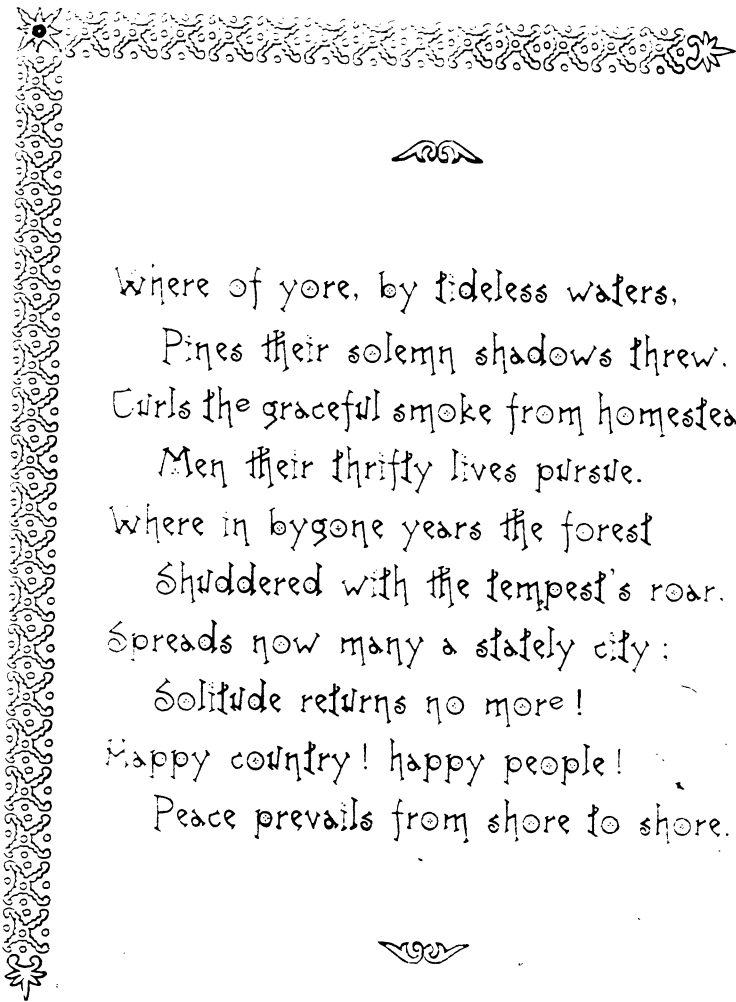 Where of yore, by tideless waters,
Pines their solemn shadows threw.
Curls the graceful smoke from homestea
Men their thrifty lives pursue.
Where in bygone years the forest
Shuddered with the tempest's roar.
Spreads now many a stately city :
Solitude returns no more !
Happy country ! happy people !
Peace prevails from shore to shore.